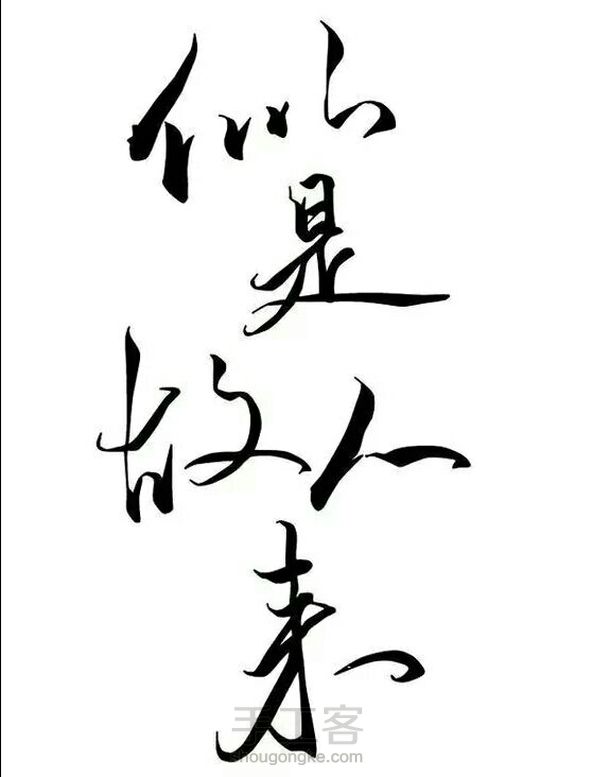 似
是
故人
来
手工客
shougongke.com